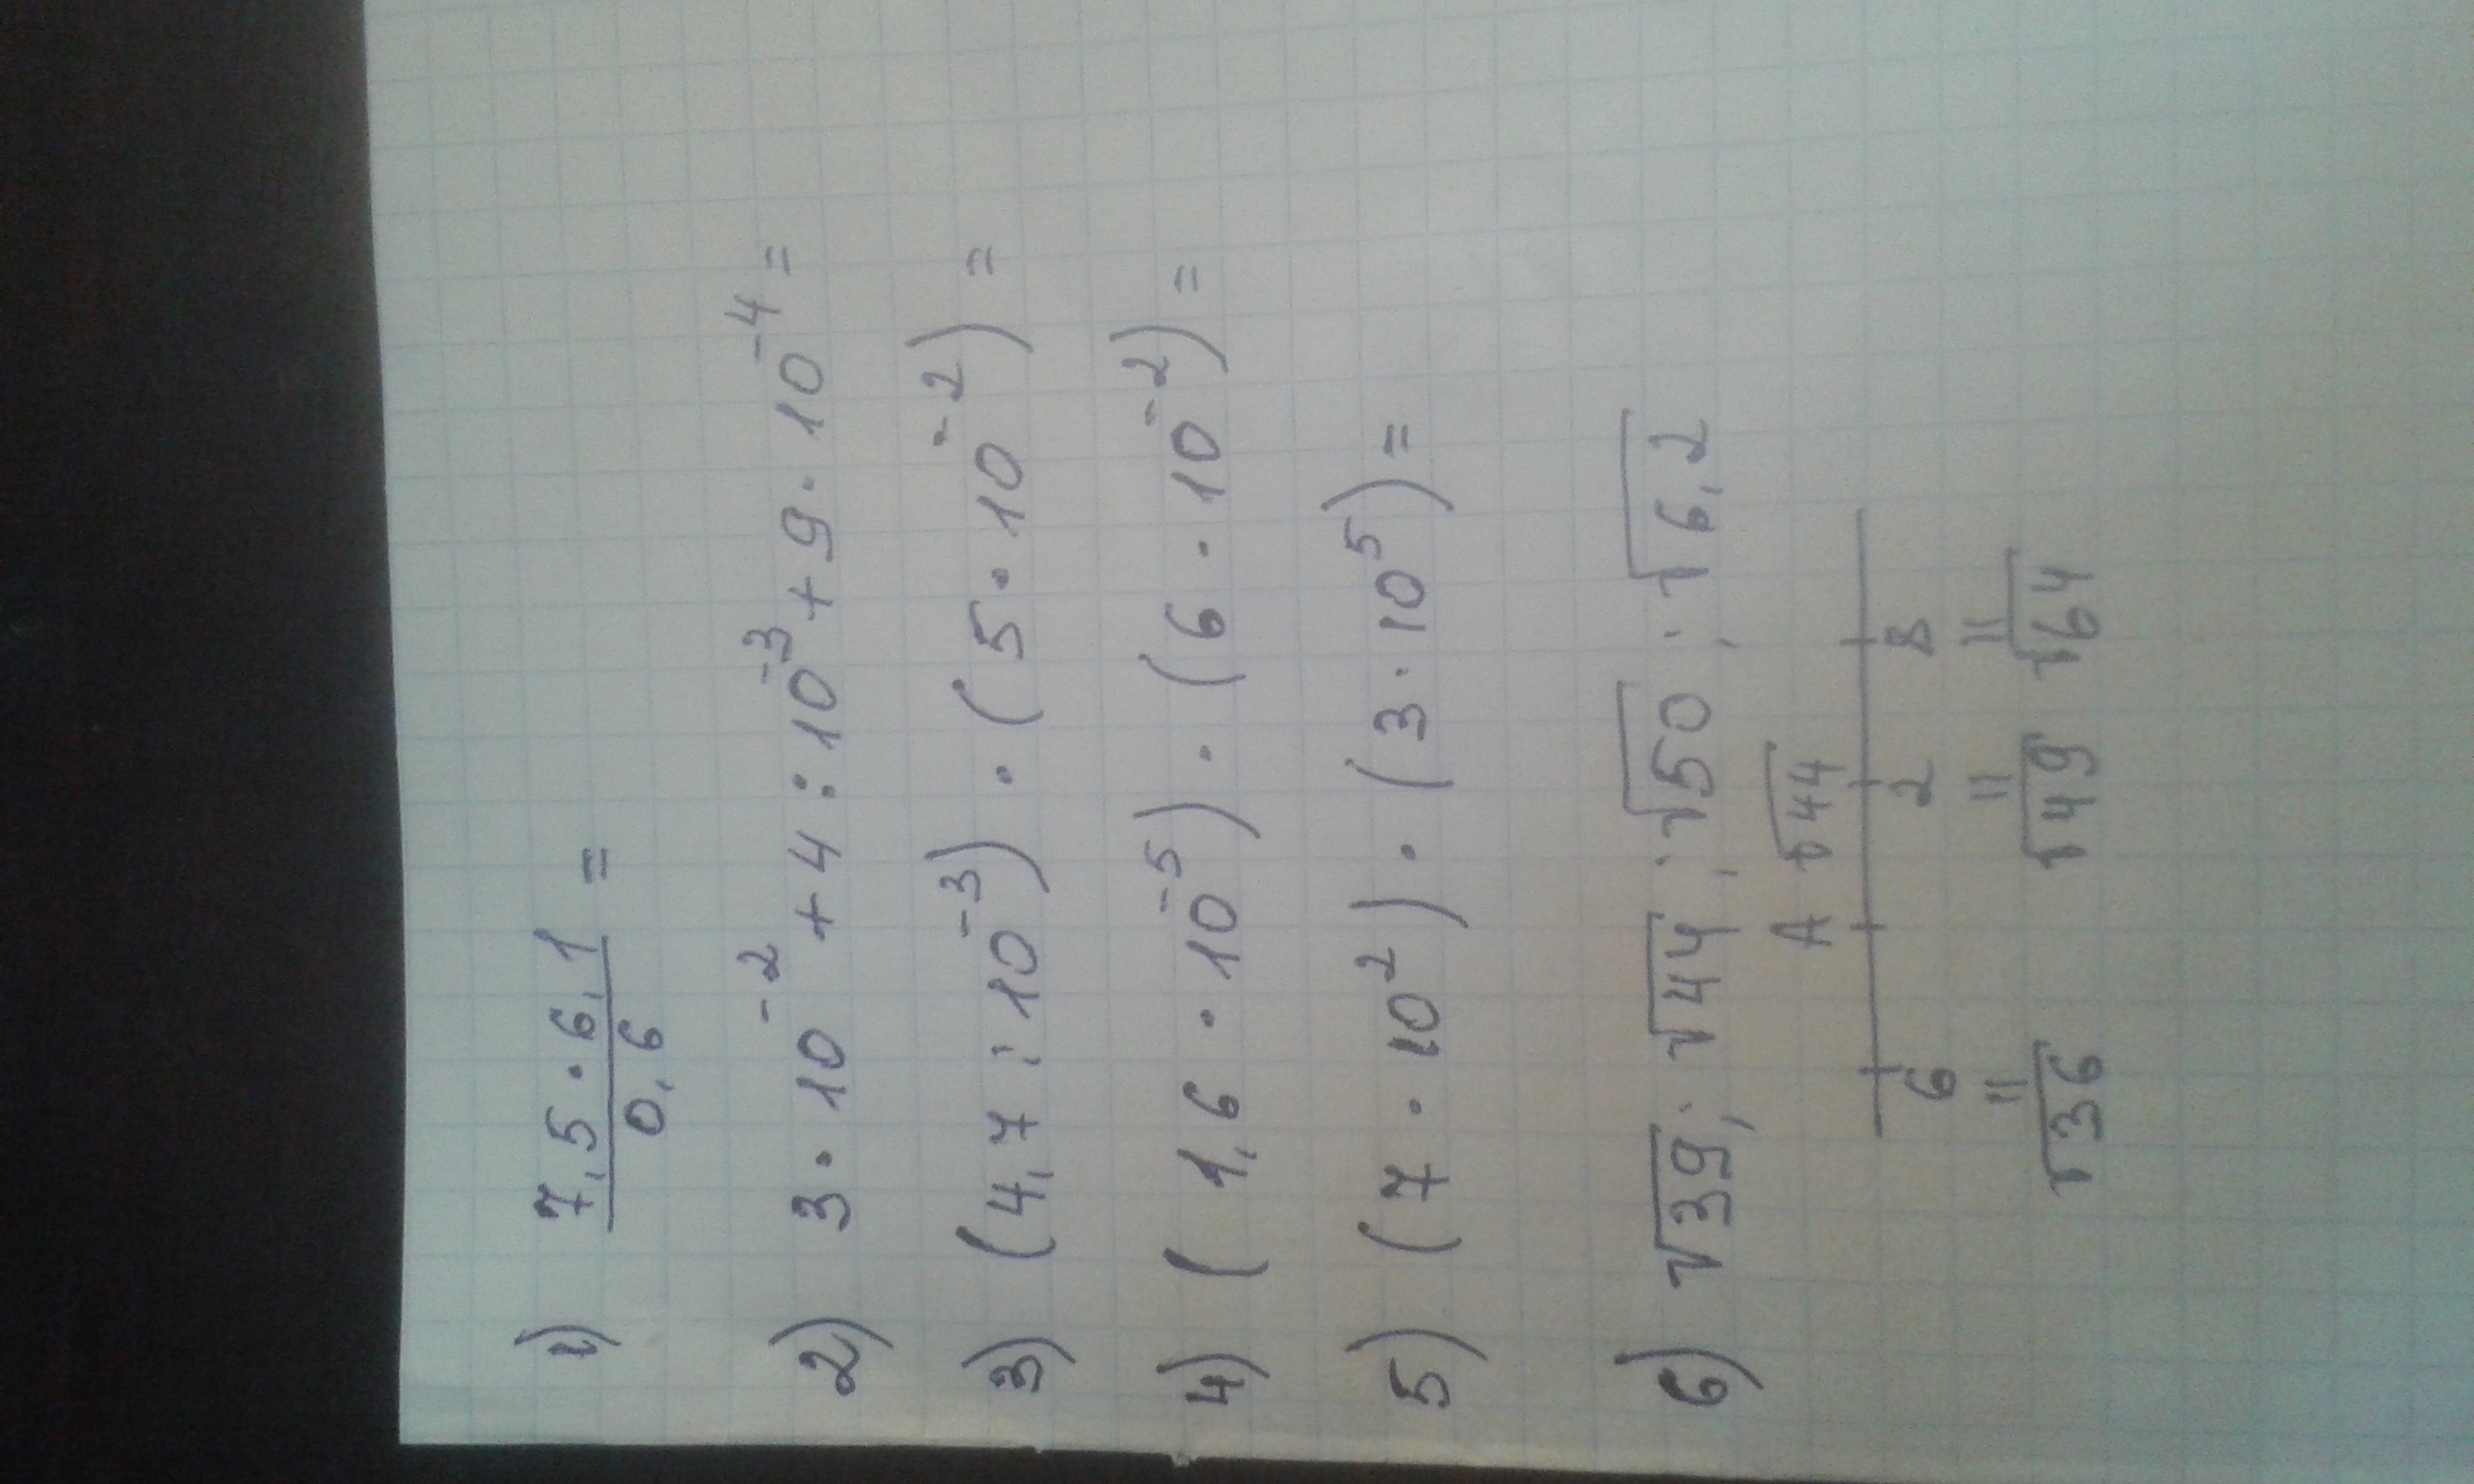 1) 7,5 · 6,1 / 0,6 =
2) 3 · 10⁻² + 4 : 10⁻³ + 9 · 10⁻⁴ =
3) (4,7 : 10⁻³) · (5 · 10⁻²) =
4) (1,6 · 10⁻⁵) · (6 · 10⁻²) =
5) (7 · 10²) · (3 · 10⁵) =
6) √39; √44; √50; √6,2
A √44
6 2 8
= = =
√36 √49 √64